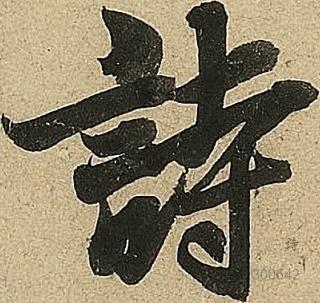 詩
300642